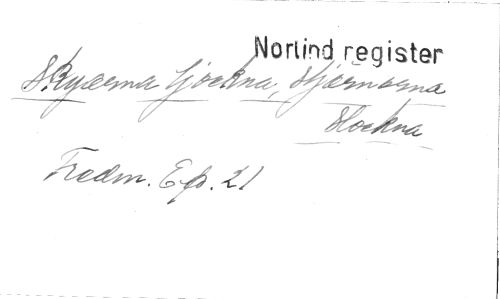 Norlind register
Skyarna tjockna, Stjärnorna
Slockna
Fredm. Ep. 21